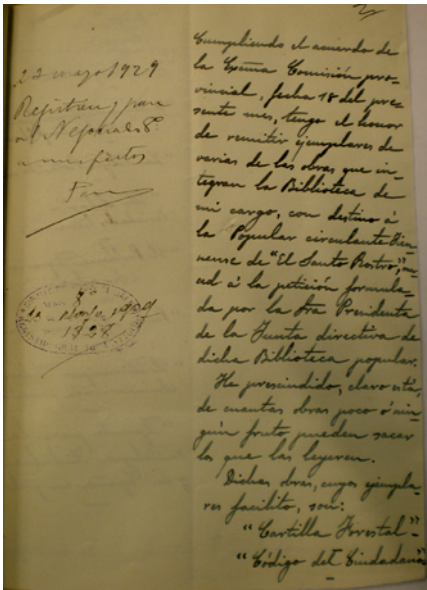 23 mayo 1929
Registren y pase
al Negociado
a sus efectos
Cumpliendo el acuerdo de
la Excma Comisión pro-
vincial, fecha 18 del pre-
sente mes, tengo el honor
de remitir ejemplares de
varias de las obras que in-
tegran la Biblioteca de
mi cargo, con destino á
la Popular circulante Gien-
nense de "El Santo Rostro",
á la petición formula-
da por la Sra Presidenta
de la Junta directiva de
dicha Biblioteca popular.
He prescindido, claro está,
de cuantas obras poco ó nin-
gún fruto pueden sacar
los que las leyeren.
Dichas obras, cuyos ejempla-
res facilito, son:
"Cartilla Forestal"-
"Código del Ciudadano"